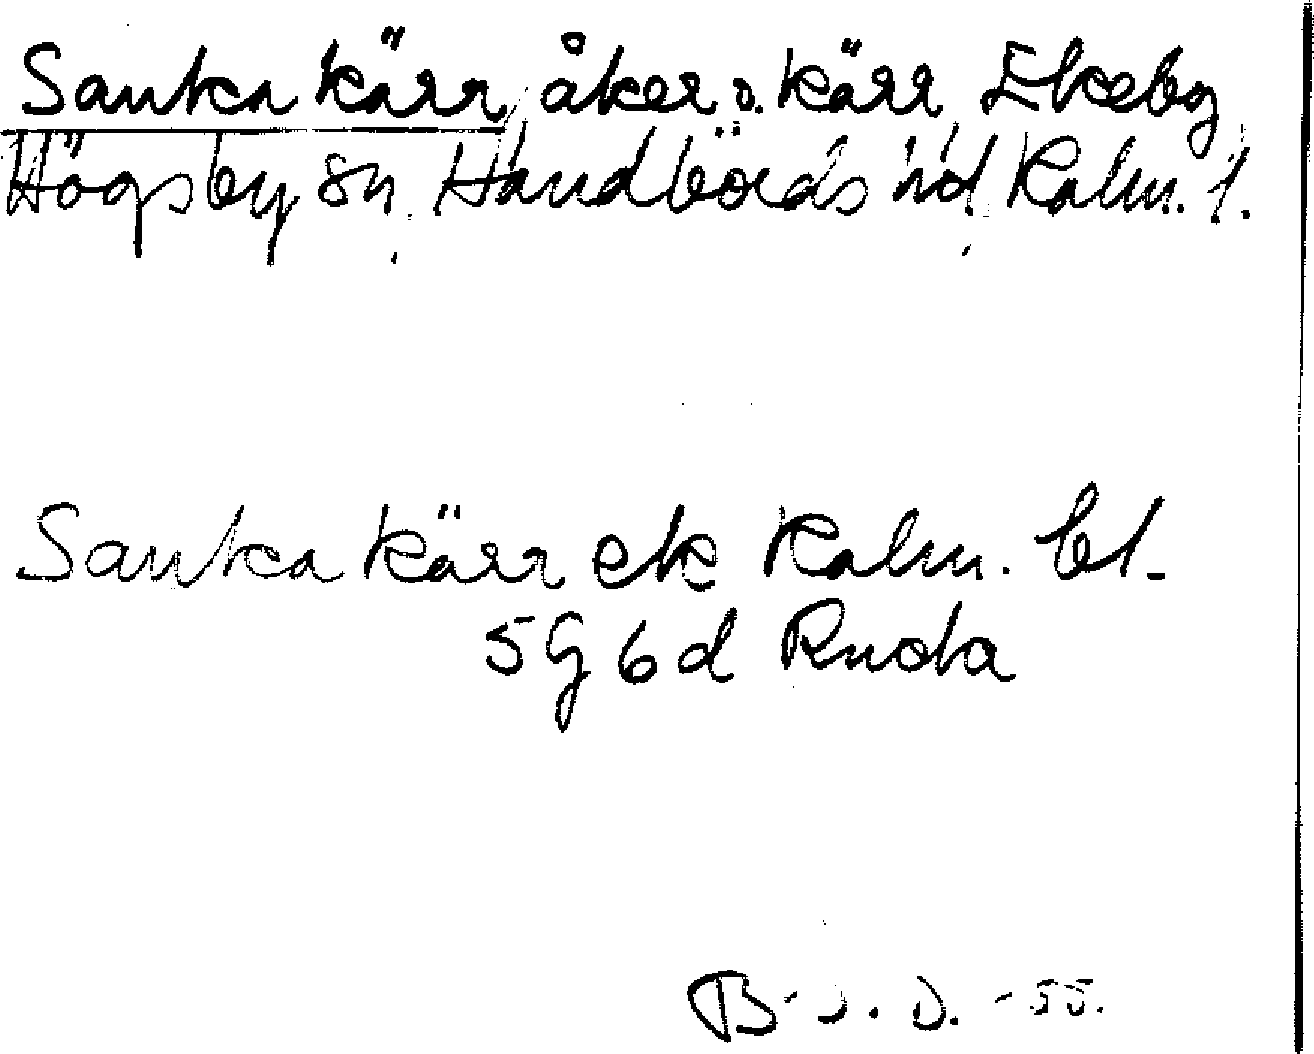 Sankakärr, åker o. kärr Ekeby
Högsby sn. Handbörds hd. Kalm. l.
Sankakärr ek Kalm. bl.
5 G 6 d Ruda
B-J. D. -55.